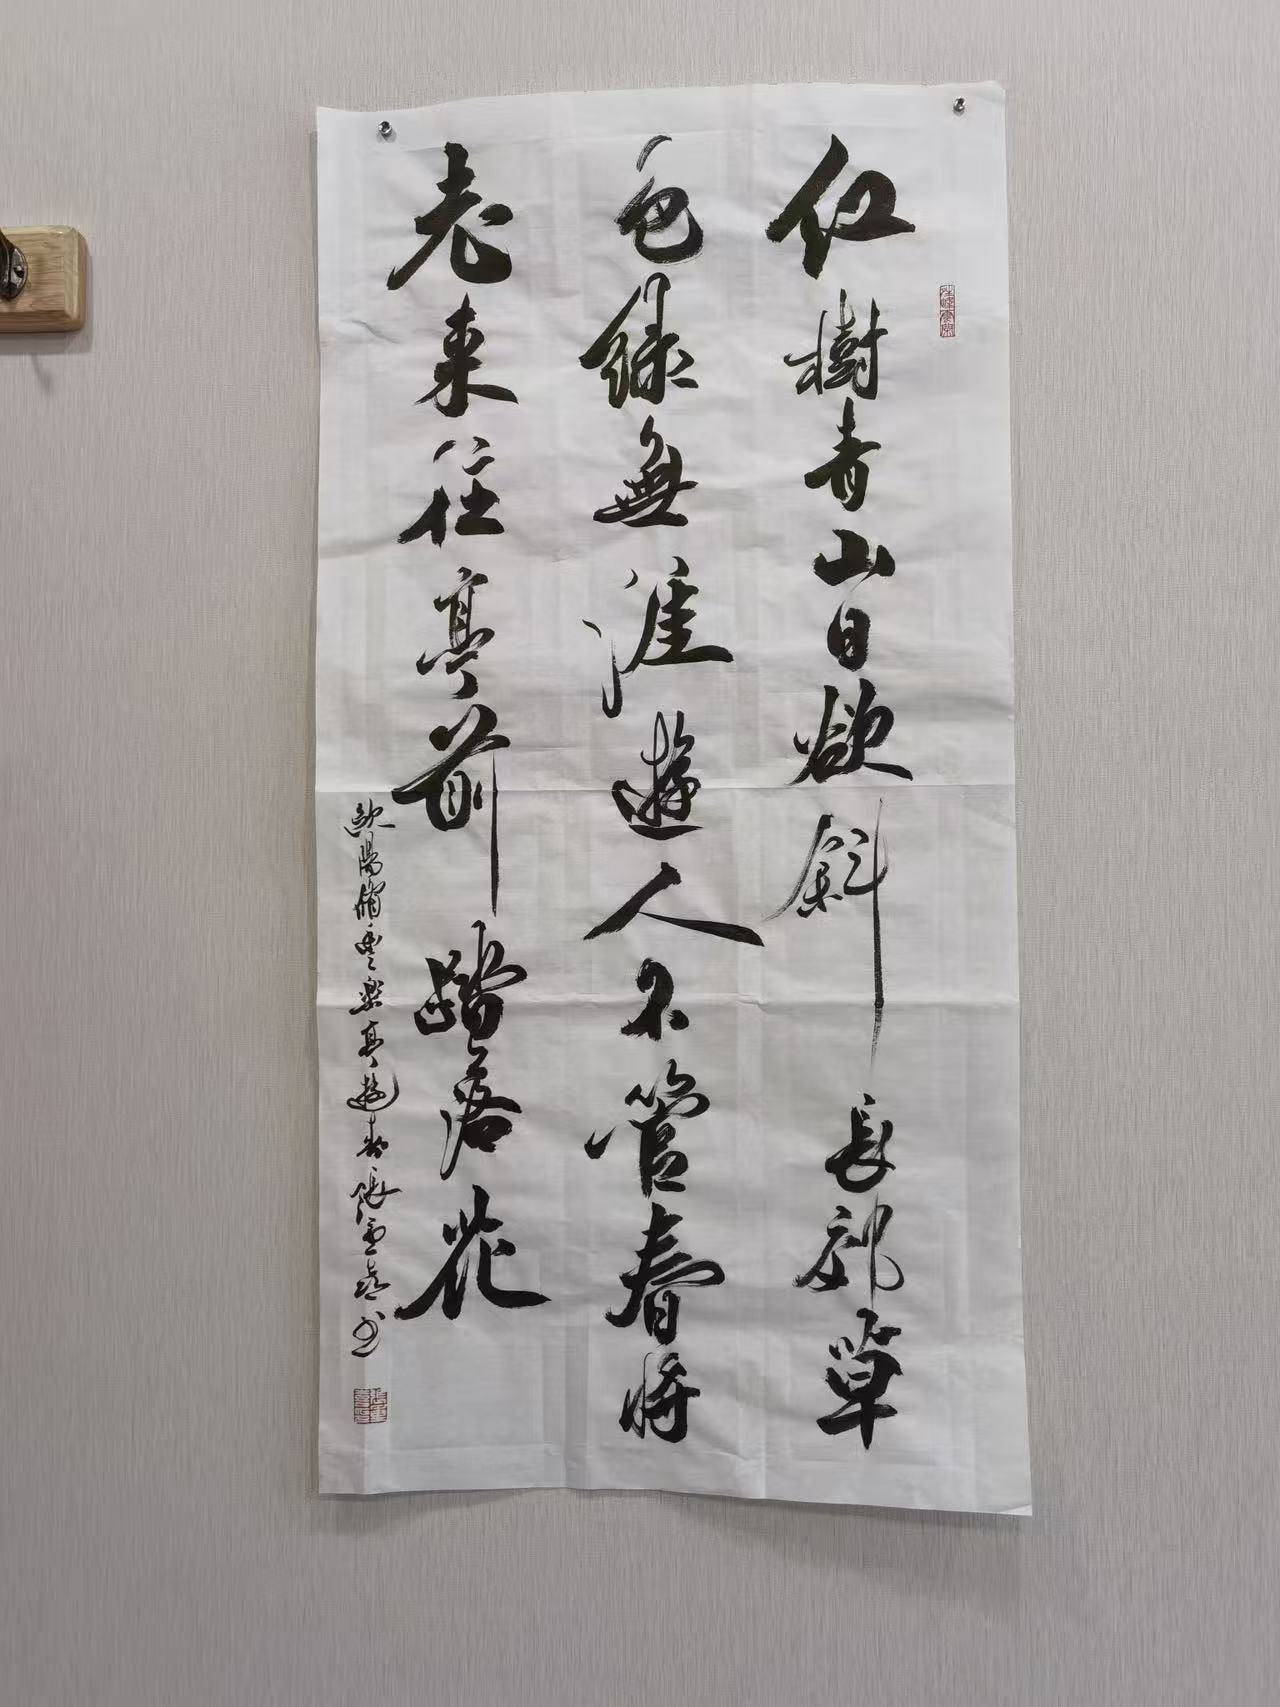 红樹青山日欲斜長郊草
色緑無涯遊人不管春將
老来往亭前踏落花
歐陽脩豊樂亭遊春張重喜书